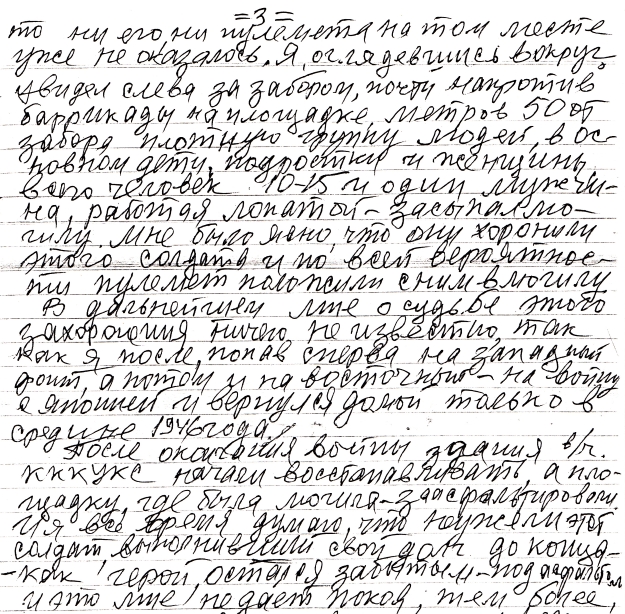 =3=
то ни его, ни пулемета на том месте
уже не оказалось. Я, оглядевшись вокруг
увидел слева за забором, почти напротив
баррикады на площадке, метров 50 от
забора плотную группу людей, в ос-
новном дети, подростки и женщины
всего человек 10-15 и один мужчи-
на, работая лопатой - засыпал мо-
гилу. Мне было ясно, что они хоронили
этого солдата и по всей вероятнос-
ти пулемет положили с ним в могилу
В дальнейшем мне о судьбе этого
захоронения ничего не известно, так
как я после, попав сперва на западный
фронт, а потом и на восточный - на войну
с японией и вернулся домой только в
средине 1946 года.
После окончания войны здания в/ч.
КККУКС начали восстанавливать, а пло-
щадку, где была могила - заасфальтировали
И я всё время думаю, что неужели этот
солдат, выполнивший свой долг до конца -
- как герой, остался забытым - под асфальтом
и это мне не дает покоя, тем более,